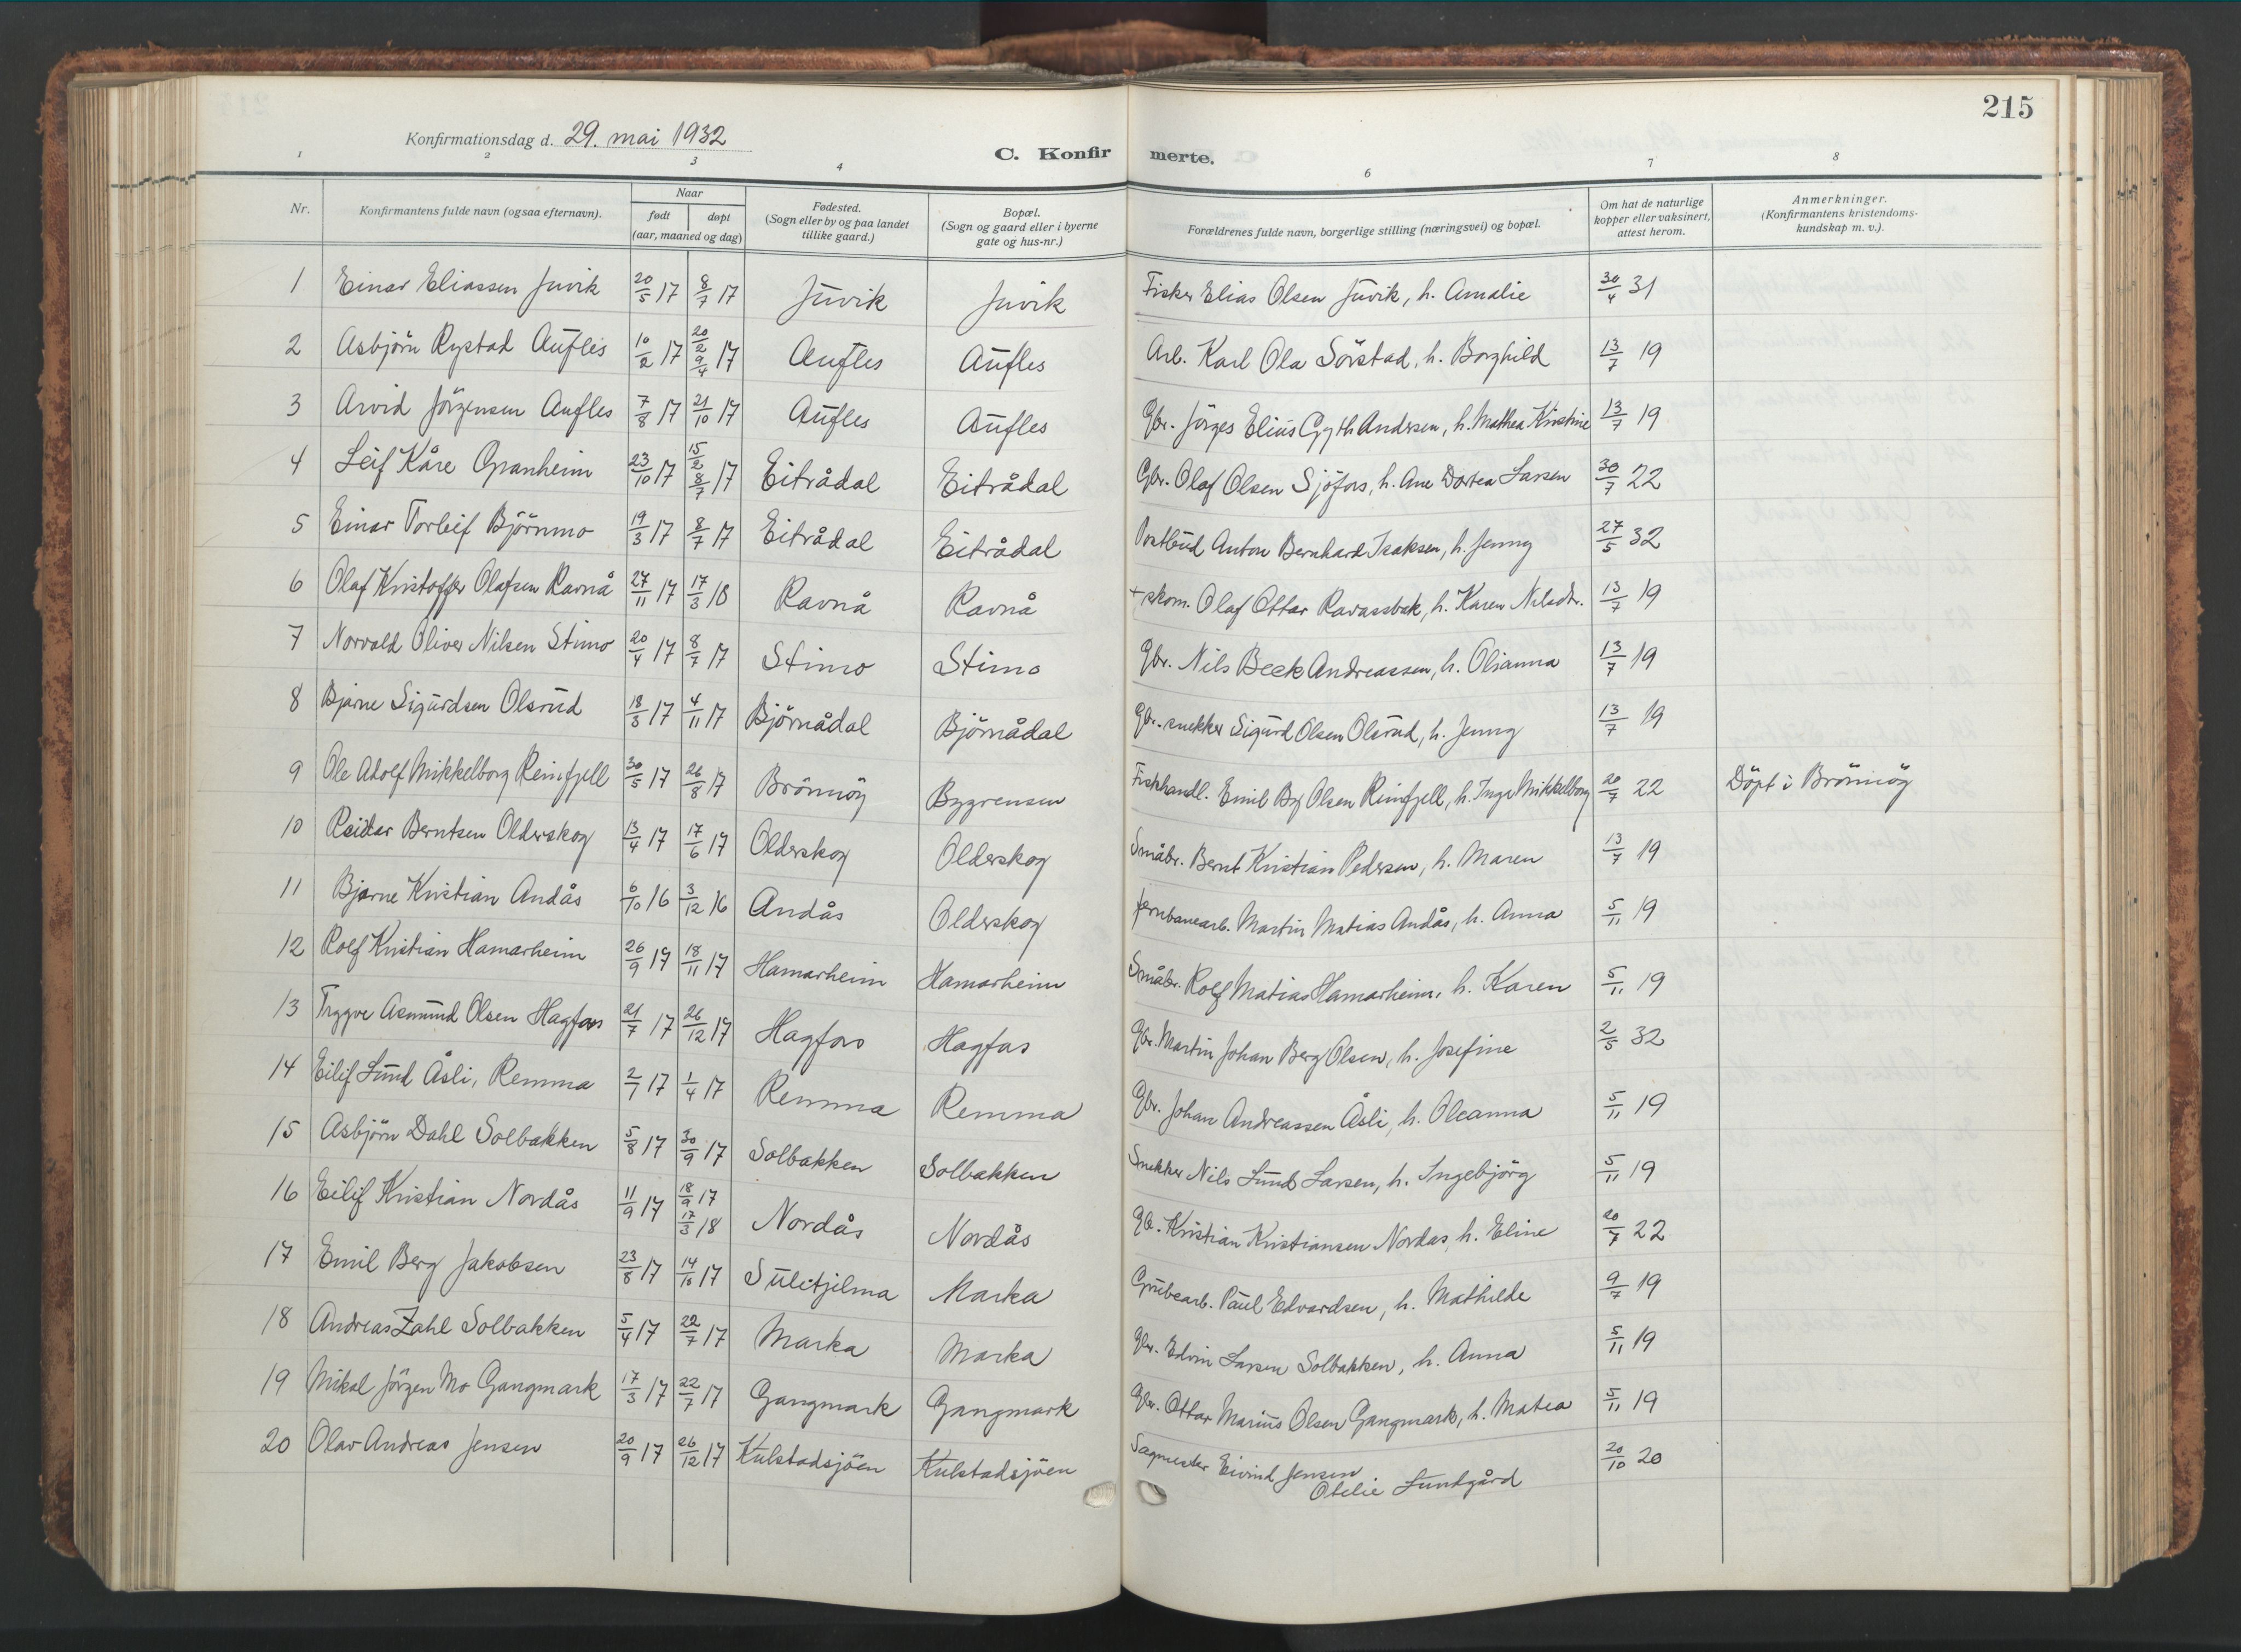 215
Konfirmationsdag d. 29. mai 1932
C. Konfir merte.
1 2 3 4 6 7 8
Nr.
Konfirmantens fulde navn (ogsaa efternavn).
Naar
født døpt
(aar, maaned og dag)
Fødested.
(Sogn eller by og paa landet
tillike gaard.)
Bopæl.
(Sogn og gaard eller i byerne
gate og hus-nr.)
Forældrenes fulde navn, borgerlige stilling (næringsvei) og bopæl.
Om hat de naturlige
kopper eller vaksinert,
attest herom.
Anmerkninger.
(Konfirmantens kristendoms-
kundskap m. v.).
1 Einar Eliassen Juvik 20/5 17 8/7 17 Juvik Juvik Fisker Elias Olsen Juvik, h. Amalie 30/4 31
2 Asbjörn Rystad Aufles 10/2 17 20/2 9/4 17 Aufles Aufles Arb. Karl Ola Sörstad, h. Borghild 13/7 19
3 Arvid Jörgensen Aufles 7/8 17 21/10 17 Aufles Aufles Gbr. Jörges Elius Gyth Andersen, h. Mathea Kristine 13/7 19
4 Leif Kåre Granheim 23/10 17 15/2 8/7 17 Eitrådal Eitrådal Gbr. Olaf Olsen Sjöfors, h. Ane Dortea Larsen 30/7 22
5 Einar Torleif Björnmo 19/3 17 8/7 17 Eitrådal Eitrådal Postbud Anton Bernhard Isaksen, h. Jenny 27/5 32
6 Olaf Kristoffer Olafsen Ravnå 27/11 17 17/3 18 Ravnå Ravnå + skom. Olaf Ottar Ravassbak, h. Karen Nilsdtr. 13/7 19
7 Norvald Oliver Nilsen Stimo 20/4 17 8/7 17 Stimo Stimo Gbr. Nils Beck Andreassen, h. Olianna 13/7 19
8 Bjarne Sigurdsen Olsrud 18/3 17 4/11 17 Björnådal Björnådal Gbr. snekker Sigurd Olsen Olsrud, h. Jenny 13/7 19
9 Ole Adolf Mikkelborg Reinfjell 30/5 17 26/8 17 Brönnöy Bygrensen Fiskhandl. Emil By Olsen Reinfjell, h. Inga Mikkelborg 20/7 22 Döpt i Brönnöy
10 Reidar Berntsen Olderskog 13/4 17 17/6 17 Olderskog Olderskog Småbr. Bernt Kristian Pedersen, h. Maren 13/7 19
11 Bjarne Kristian Andås 6/10 16 3/12 16 Andås Olderskog Jernbanearb. Martin Matias Andås, h. Anna 5/11 19
12 Rolf Kristian Hamarheim 26/9 17 18/11 17 Hamarheim Hamarheim Småbr. Rolf Matias Hamarheim, h. Karen 5/11 19
13 Trygve Asmund Olsen Hagfors 21/7 17 26/12 17 Hagfors Hagfors Gbr. Martin Johan Berg Olsen, h. Josefine 2/5 32
14 Eilif Lund Åsli, Remma 2/1 17 1/4 17 Remma Remma Gbr. Johan Andreassen Åsli, h. Oleanna 5/11 19
15 Asbjörn Dahl Solbakken 5/8 17 30/9 17 Solbakken Solbakken Snekker Nils Lund Larsen, h. Ingebjörg 5/11 19
16 Eilif Kristian Nordås 11/9 17 18/9 17 17/3 18 Nordås Nordås Gbr. Kristian Kristiansen Nordas, h. Eline 20/7 22
17 Emil Berg Jakobsen 23/8 17 14/10 17 Sulitjelma Marka Grubearb. Paul Edvardsen, h. Mathilde 9/7 19
18 Andreas Zahl Solbakken 5/4 17 22/7 17 Marka Marka Gbr. Edvin Larsen Solbakken, h. Anna 5/11 19
19 Mikal Jörgen Mo Gangmark 17/3 17 22/7 17 Gangmark Gangmark Gbr. Ottar Marius Olsen Gangmark, h. Matea 5/11 19
20 Olav Andreas Jensen 20/9 17 26/12 17 Kulstadsjöen Kulstadsjöen Sagmester Eivind Jensen 20/10 20
Otelie Lundgård